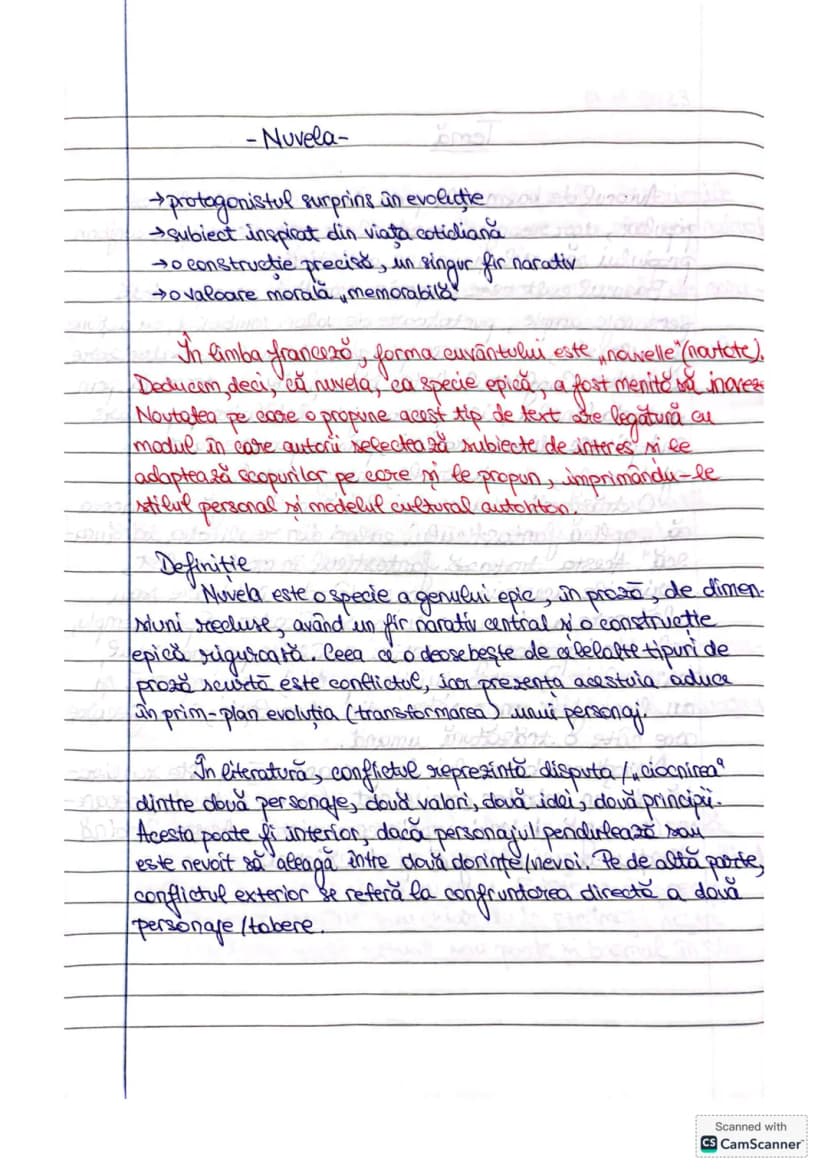 -Nuvela-
→protagonistul surprins în evoluție
→subiect inspirat din viața cotidiană
→o construcție precisă, un singur fir narativ
→o valoare morală „memorabilă"
În limba franceză, forma cuvântului este „nouvelle"(noutate).
Deducem, deci, că nuvela, ca specie epică, a fost menită să
Noutatea pe care o propune acest tip de text are legătură cu
modul în care autorii selectează subiecte de interes și le
adaptează scopurilor pe care și le propun, imprimându-le
stilul personal și modelul cultural autohton.
Definiție
Nuvela este o specie a genului epic, în proză, de dimen-
siuni reduse, având un fir narativ central și o construcție
epică riguroasă. Ceea ce o deosebește de celelalte tipuri de
proză scurtă este conflictul, iar prezența acestuia aduce
în prim-plan evoluția (transformarea) unui personaj.
În literatură, conflictul reprezintă disputa /„ciocnirea"
dintre două personaje, două valori, două idei, două principii.
Acesta poate fi interior, dacă personajul pendulează sau
este nevoit să aleagă între două dorințe/nevoi. Pe de altă parte,
conflictul exterior se referă la confruntarea directă a două
personaje/tabere.
Scanned with
CS CamScanner